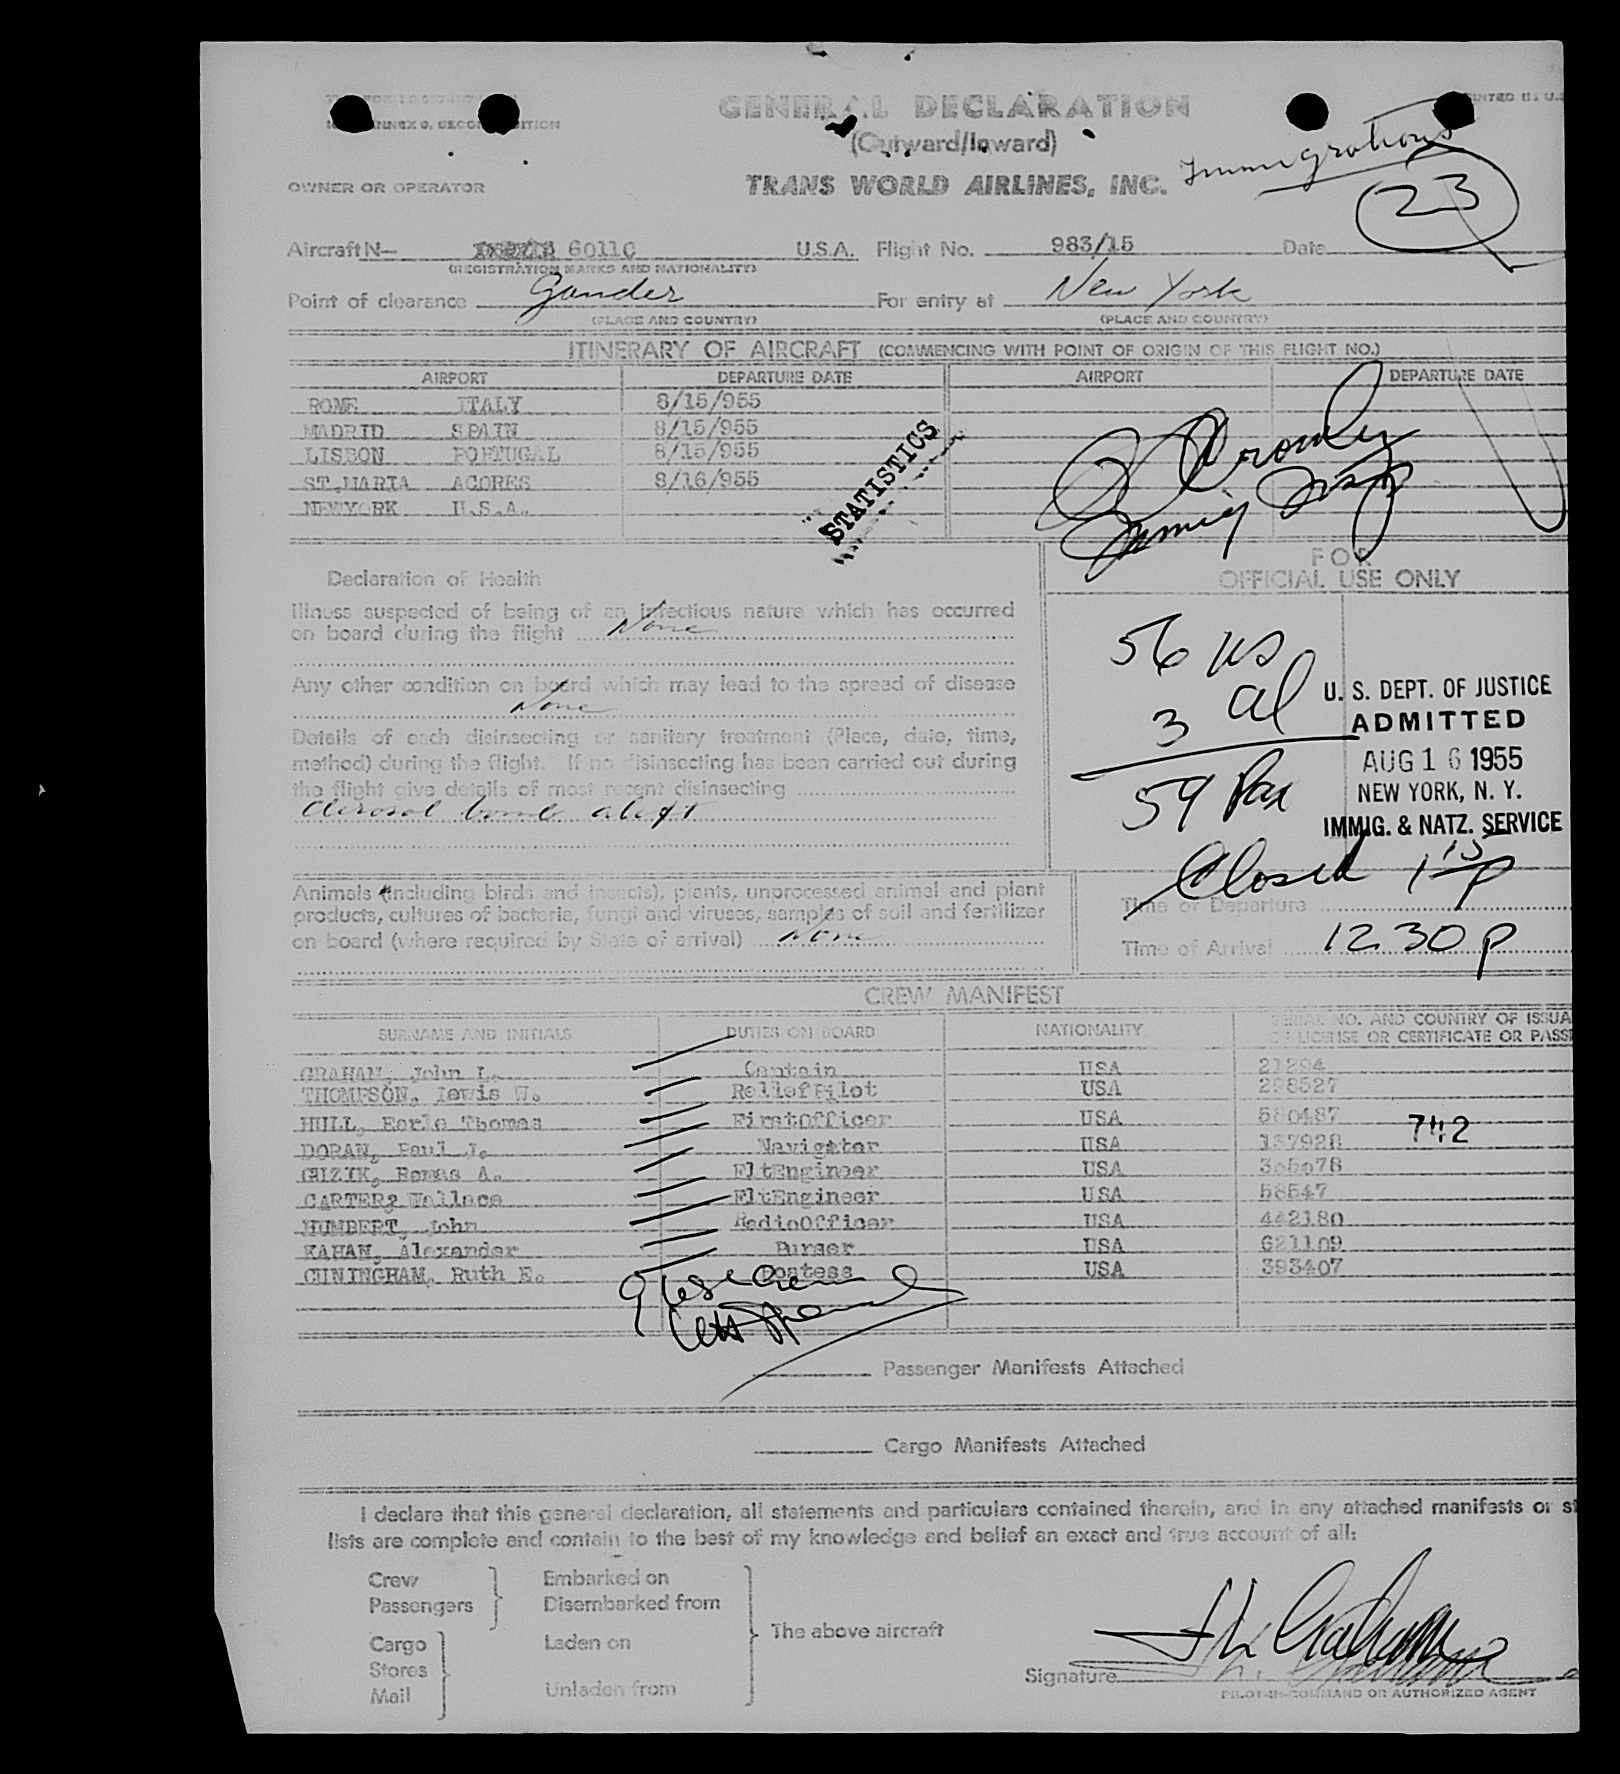 GENERAL DECLARATION
PRINTED IN U.S.
ANNEX 9, SECOND EDITION
(Outward/Inward)
Immigrations
OWNER OR OPERATOR
TRANS WORLD AIRLINES, INC.
23
Aircraft N— 6011C U.S.A. Flight No. 983/15 Date
(REGISTRATION MARKS AND NATIONALITY)
Point of clearance Gander For entry at New York
(PLACE AND COUNTRY) (PLACE AND COUNTRY)
ITINERARY OF AIRCRAFT (COMMENCING WITH POINT OF ORIGIN OF THIS FLIGHT NO.)
AIRPORT DEPARTURE DATE AIRPORT DEPARTURE DATE
ROME ITALY 8/15/955
MADRID SPAIN 8/15/955
LISBON PORTUGAL 8/15/955
ST.MARIA ACORES 8/16/955
NEWYORK U.S.A.
STATISTICS
Immig Insp
Declaration of Health
FOR
OFFICIAL USE ONLY
Illness suspected of being of an infectious nature which has occurred
on board during the flight None
Any other condition on board which may lead to the spread of disease
None
Details of each disinsecting or sanitary treatment (Place, date, time,
method) during the flight. If no disinsecting has been carried out during
the flight give details of most recent disinsecting
Aerosol bomb aloft
56 US
3 al
59 Pax
U. S. DEPT. OF JUSTICE
ADMITTED
AUG 16 1955
NEW YORK, N. Y.
IMMIG. & NATZ. SERVICE
Closed 1 15 p
Animals (including birds and insects), plants, unprocessed animal and plant
products, cultures of bacteria, fungi and viruses, samples of soil and fertilizer
on board (where required by State of arrival) None
Time of Departure
Time of Arrival 12 30 p
CREW MANIFEST
SURNAME AND INITIALS DUTIES ON BOARD NATIONALITY SERIAL NO. AND COUNTRY OF ISSUA
OF LICENSE OR CERTIFICATE OR PASS
GRAHAM, John L. Captain USA 21294
THOMPSON, Lewis W. ReliefPilot USA 298527
HULL, Earle Thomas FirstOfficer USA 580487
742
DORAN, Paul J. Navigator USA 137928
GUZIK, Romas A. FltEngineer USA 365678
CARTER, Wallace FltEngineer USA 58547
HUMBERT, John RadioOfficer USA 442180
KAHAN, Alexander Purser USA 621109
CUNINGHAM, Ruth E. Hostess USA 393407
Passenger Manifests Attached
Cargo Manifests Attached
I declare that this general declaration, all statements and particulars contained therein, and in any attached manifests or st
lists are complete and contain to the best of my knowledge and belief an exact and true account of all:
Crew
Passengers
Embarked on
Disembarked from
Cargo
Stores
Mail
Laden on
Unladen from
The above aircraft
Signature J L Graham
PILOT-IN-COMMAND OR AUTHORIZED AGENT